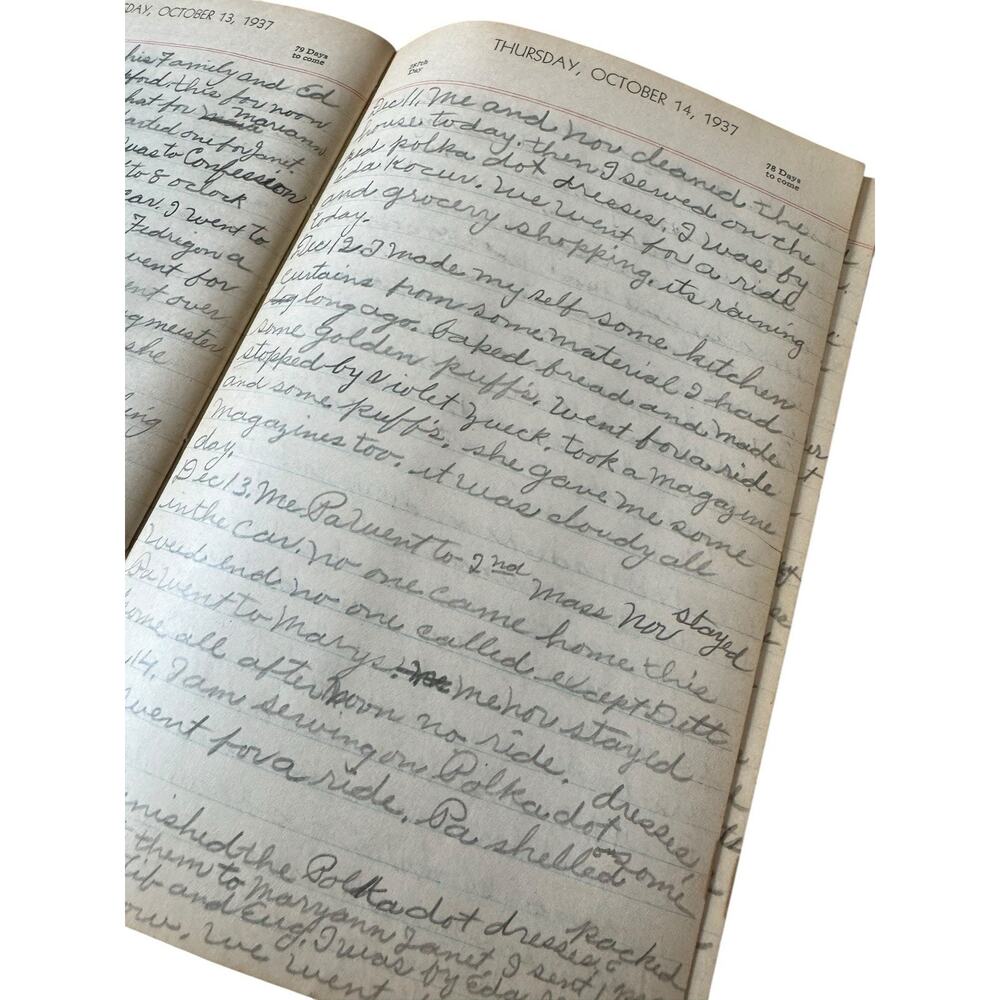 DAY, OCTOBER 13, 1937
79 Days
to come
his Family and Ed
this fore noon
hat for Mariann
started one for Janet.
was to Confession
to 8 oclock
car. I went to
Fedrigon a
went for
ent over
gmeister
she
ling
THURSDAY, OCTOBER 14, 1937
287th
Day
78 Days
to come
Dec 11. Me and Nov cleaned the
house today. then I sewed on the
red polka dot dresses. I was by
Eda Kocur. We went for a ride
and grocery shopping. its raining
today.
Dec 12 I made my self some kitchen
curtains from some material I had
long ago. baked bread and made
some Golden puff's. Went for a ride
stopped by Violet Zueck. took a magazine
and some puff's. she gave me some
magazines too. it was cloudy all
day.
Dec 13. Me Pa went to 2nd Mass Nov stayed
in the car. No one came home this
week end. no one called except Dutt
Pa went to Marys. me Nov stayed
home all after noon no ride.
14. I am sewing on Polka dot dresses
went for a ride. Pa shelled some
finished the Polka dot dresses, packed
them to Maryann Janet. I sent
Lib and Eug. I was by Eda
ow. we went